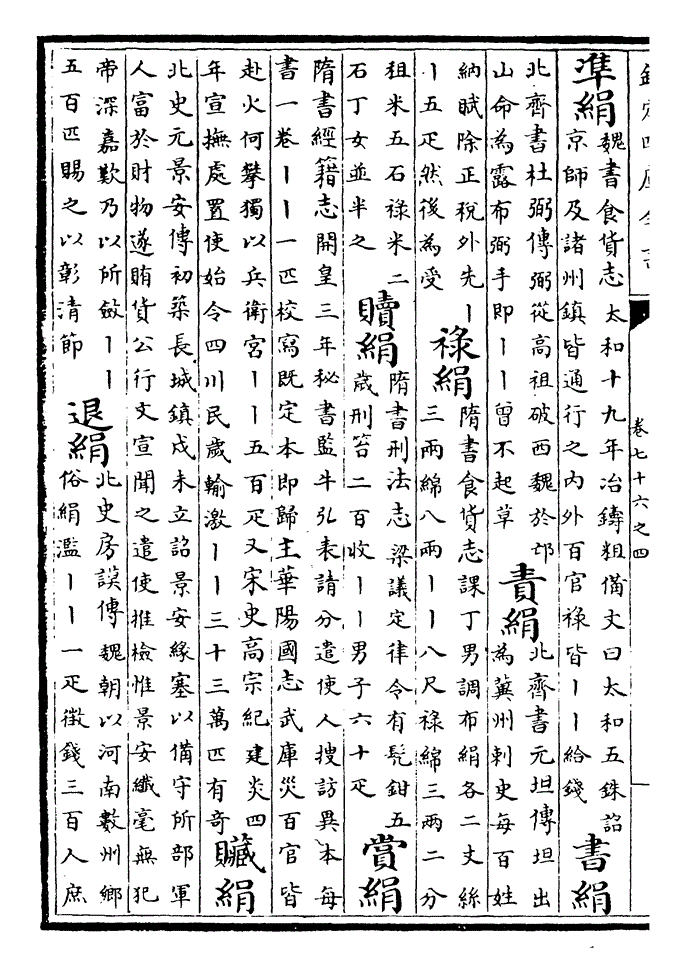 欽定四庫全書
卷七十六之四
準絹
魏書食貨志太和十九年冶鑄粗備文曰太和五銖詔
京師及諸州鎮皆通行之内外百官禄皆丨丨給錢
書絹
北齊書杜弼傳弼從高祖破西魏於邙
山命為露布弼手即丨丨曾不起草
責絹
北齊書元坦傳坦出
為冀州刺史每百姓
納賦除正稅外先丨
丨五疋然後為受
禄絹
隋書食貨志課丁男調布絹各二丈絲
三兩綿八兩丨丨八尺禄綿三兩二分
租米五石禄米二
石丁女並半之
贖絹
隋書刑法志梁議定律令有髡鉗五
歲刑笞二百收丨丨男子六十疋
賞絹
隋書經籍志開皇三年秘書監牛弘表請分遣使人搜訪異本每
書一卷丨丨一匹校寫既定本即歸主華陽國志武庫災百官皆
赴火何攀獨以兵衛宮丨丨五百疋又宋史高宗紀建炎四
年宣撫處置使始令四川民歲輸激丨丨三十三萬匹有奇
贓絹
北史元景安傳初築長城鎮戍未立詔景安緣塞以備守所部軍
人富於財物遂賄貨公行文宣聞之遣使推檢惟景安纖毫無犯
帝深嘉歎乃以所斂丨丨
五百匹賜之以彰清節
退絹
北史房謨傳魏朝以河南數州鄉
俗絹濫丨丨一疋徵錢三百人庶